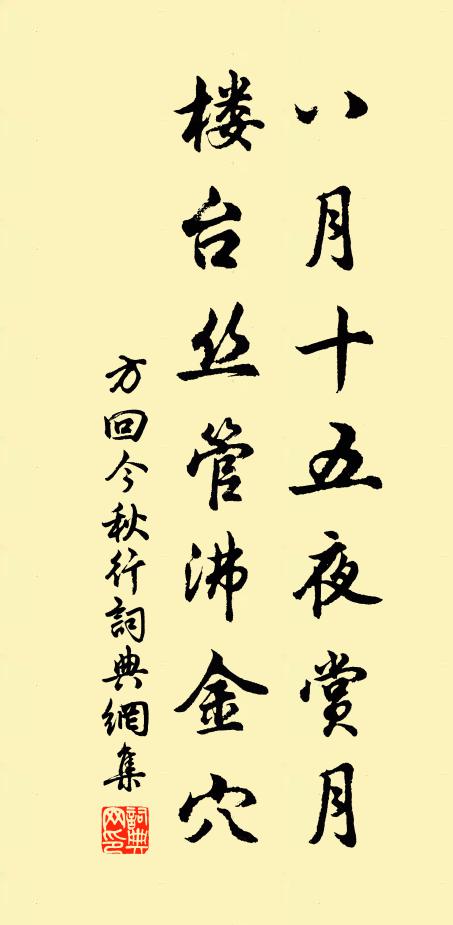 八月十五夜赏月
楼台丝管沸金穴
方回今秋行詞典網集
詞典網印